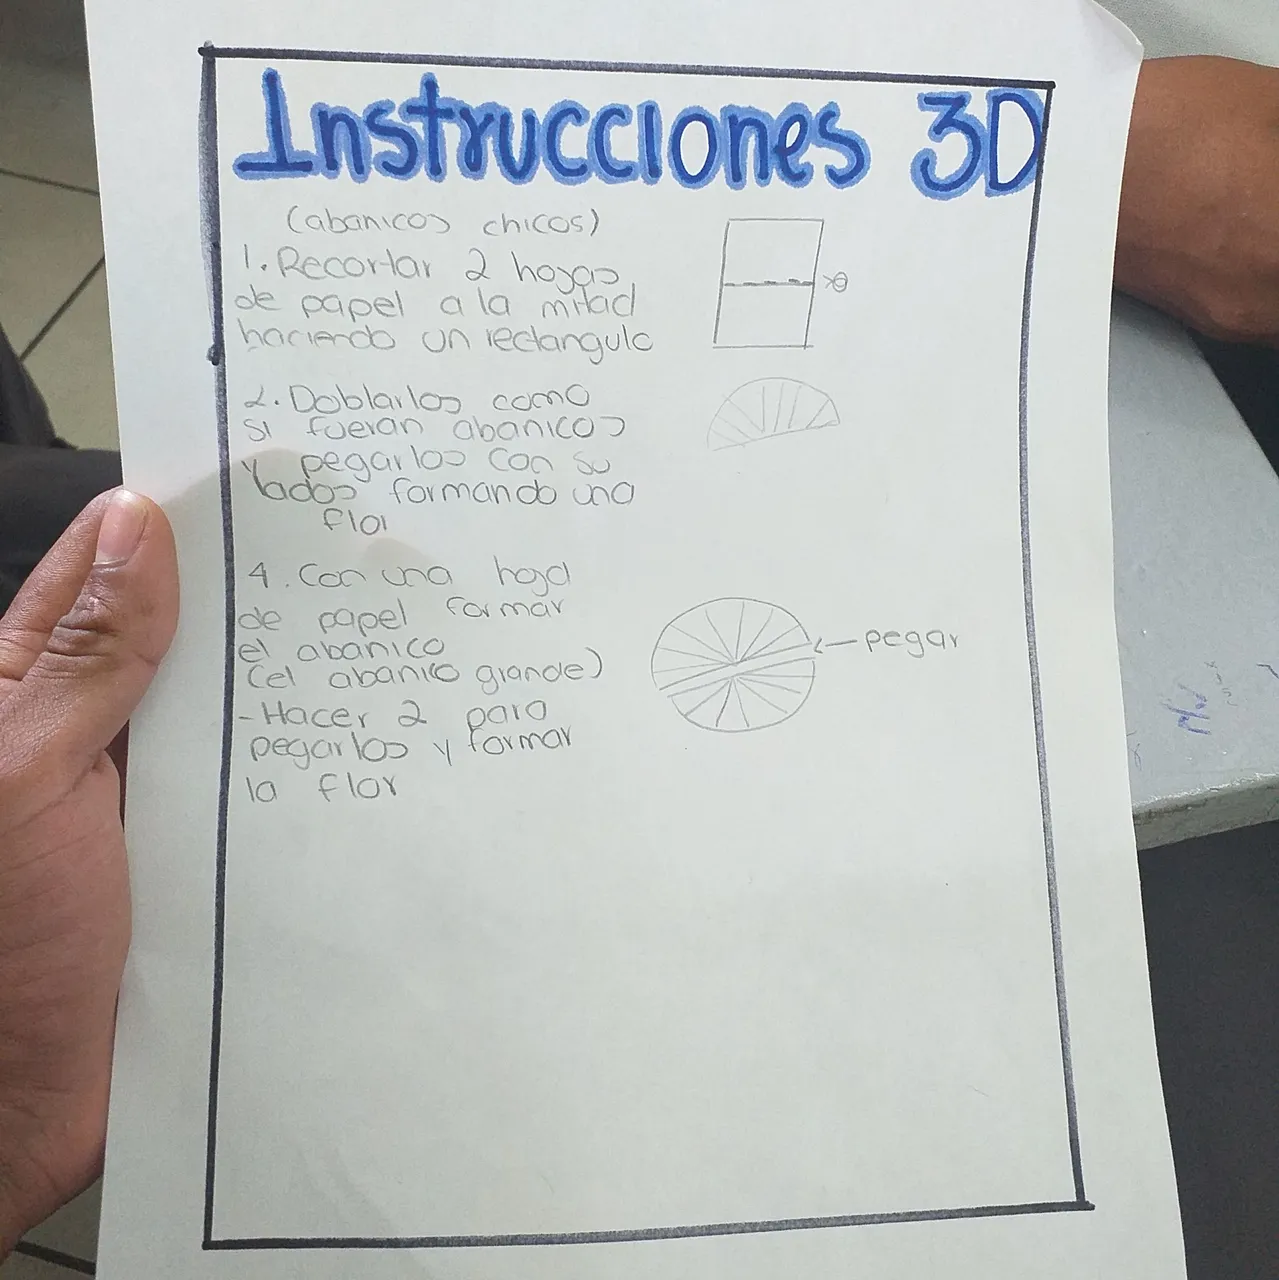 Instrucciones 3D
(abanicos chicos)
1. Recortar 2 hojas
de papel a la mitad
haciendo un rectangulo
2. Doblarlos como
si fueran abanicos
y pegarlos con su
lados formando una
flor
4. Con una hoja
de papel formar
el abanico
(el abanico grande)
- Hacer 2 para
pegarlos y formar
la flor
pegar